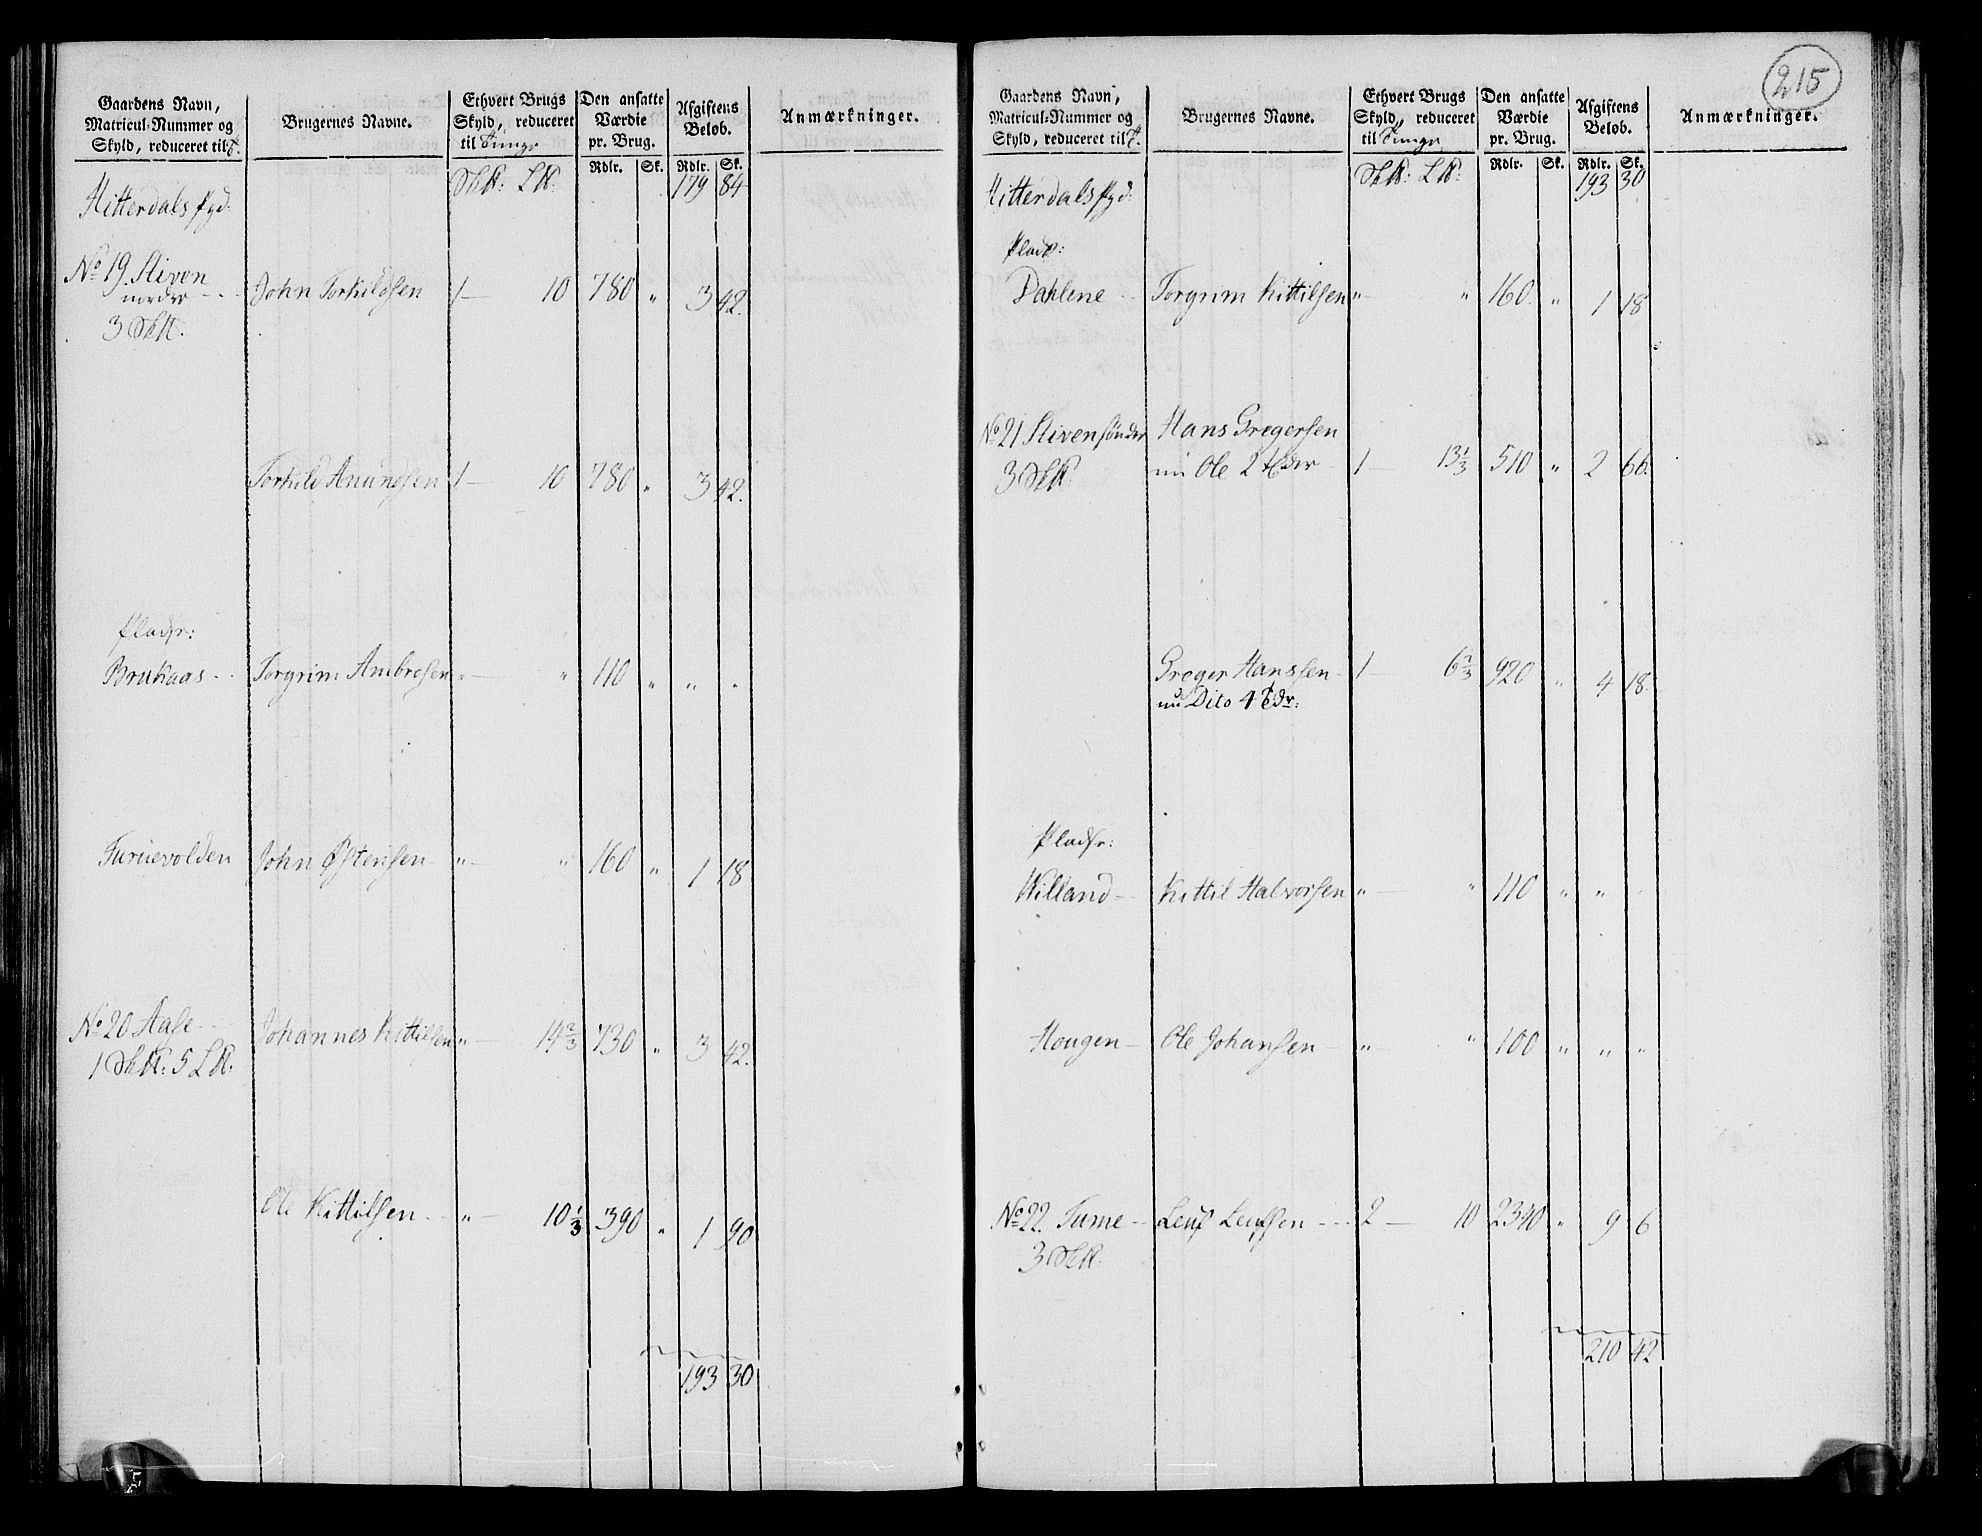 Gaardens Navn,
Matricul-Nummer og
Skyld, reduceret til
Brugernes Navne.
Ethvert Brugs
Skyld, reduceret
til Tunge
Den ansatte
Værdie
pr. Brug.
Afgiftens
Beløb.
Anmærkninger.
Rdlr. Sk. Rdlr. Sk.
Hitterdals 179 84
No 19. Stiven
norder John Torkildsen 1 — 10 780 " 3 42.
3
Torkild Anundsen 1 — 10 780 " 3 42.
Pladser:
Brukaas - Torgrim Ambrosen " — " 110 " " "
Furuevolden John Østensen " — " 160 " 1 18
No 20 Aase Johannes Kittilsen " — 14 2/3 730 " 3 42.
1 5
Ole Kittilsen " — 10 1/3 390 " 1 90
193 30
215
Gaardens Navn,
Matricul-Nummer og
Skyld, reduceret til
Brugernes Navne.
Ethvert Brugs
Skyld, reduceret
til Tunge
Den ansatte
Værdie
pr. Brug.
Afgiftens
Beløb.
Anmærkninger.
Rdlr. Sk. Rdlr. Sk.
Hitterdals 193 30
Dahlene Torgrim Kittilsen " — " 160 " 1 18
No 21 Stiven sønder Hans Gregersen
3 nu Ole 1 — 13 1/3 510 " 2 66.
Greger Hanssen 1 — 6 2/3 920 " 4 18.
nu Dito 4
Pladser:
Willand — Kittil Halvorsen " — " 110 " " "
Hougen — Ole Johansen " — " 100 " " "
No 22. Tume Leuf Leufsen 2 — 10 2340 " 9 6
3
210 42